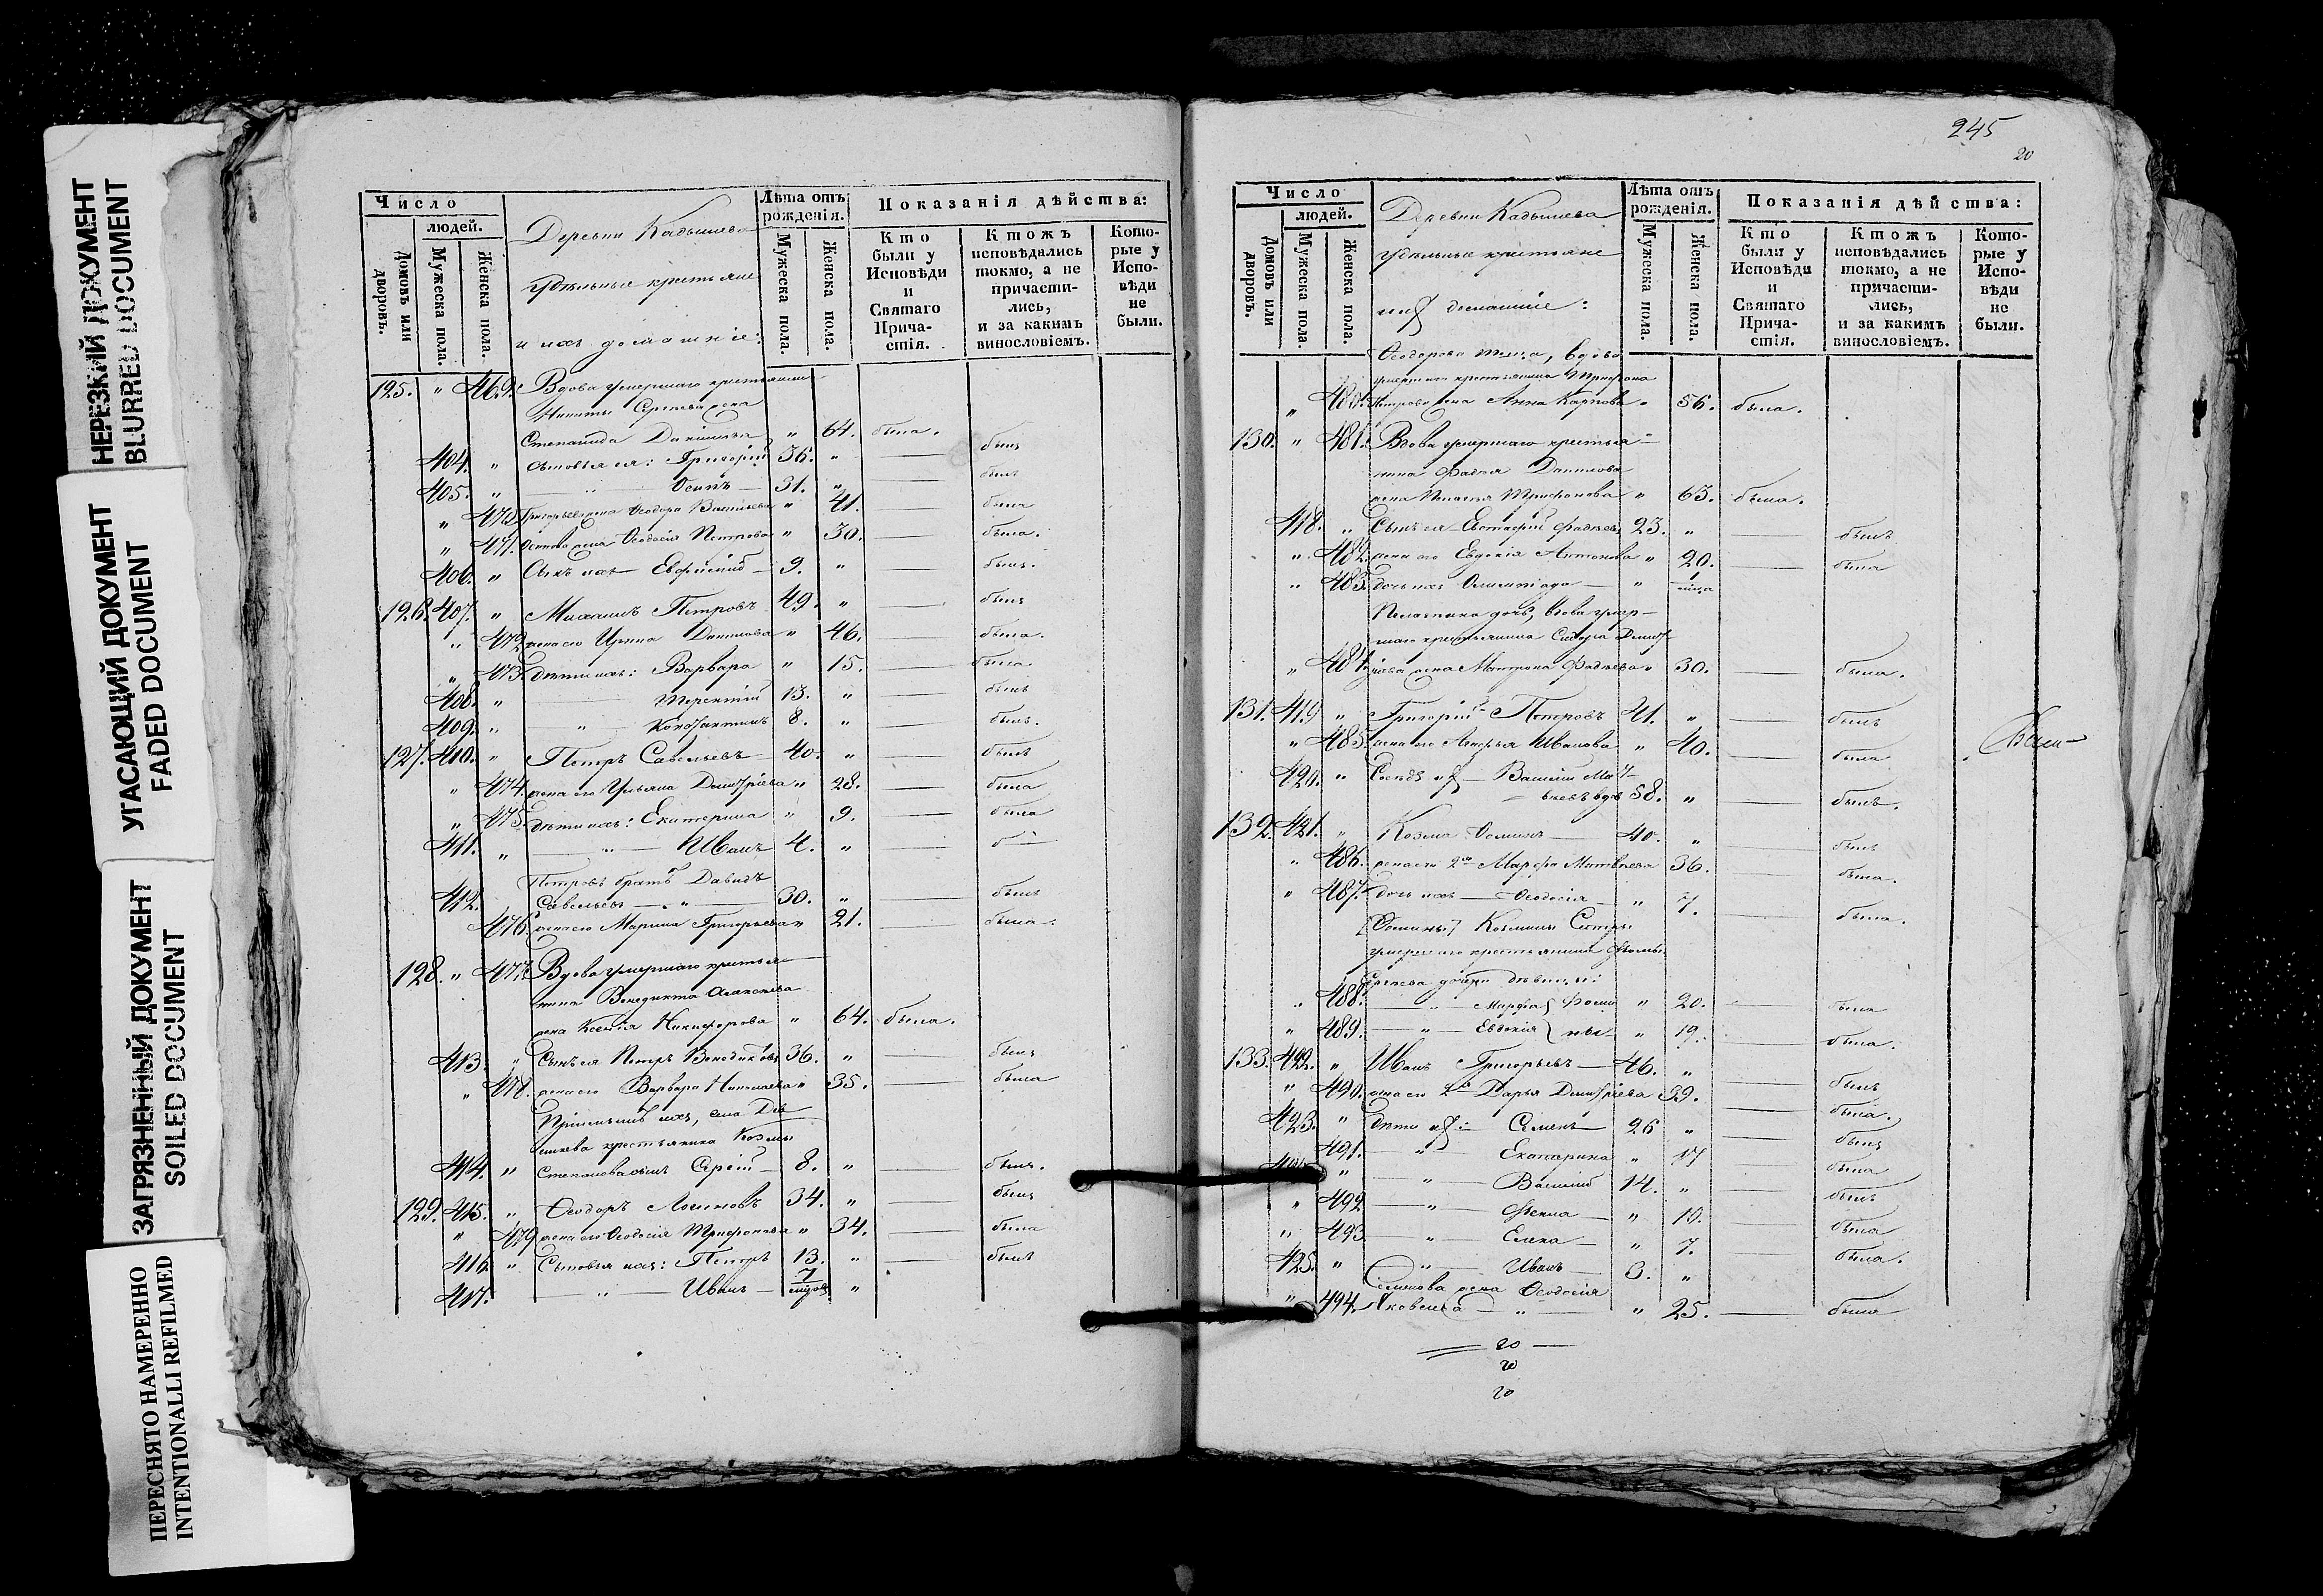 НЕРЕЗКИЙ ДОКУМЕНТ
BLURRED DOCUMENT
УГАСАЮЩИЙ ДОКУМЕНТ
FADED DOCUMENT
ЗАГРЯЗНЕННЫЙ ДОКУМЕНТ
SOILED DOCUMENT
ПЕРЕСНЯТО НАМЕРЕННО
INTENTIONALLI REFILMED
Число
людей.
Домовъ или дворовъ.
Мужеска пола.
Женска пола.
Деревни Кадышева
удѣльные крестьяне
и ихъ домашніе:
Лѣта отъ рожденія.
Мужеска пола.
Женска пола.
Показанія дѣйства:
Кто были у Исповѣди и Святаго Причастія.
Ктожъ исповѣдались токмо, а не причастились, и за какимъ винословіемъ.
Которые у Исповѣди не были.
125. " 469. Вдова умершаго крестьянина
Никиты Сергѣева жена
Степанида Данилова " 64. была.
404. " сыновья ея: Григорій 36. " — былъ
405. " — " — Осипъ — 31. " — былъ
" 470. Григорьева жена Ѳеодора Васильева " 41. — была
" 471. Осипова жена Ѳеодосія Петрова " 30. — была.
406. " Сынъ ихъ Евфимій — 9. " — былъ.
126. 407. " Михаилъ Петровъ 49. " — былъ
" 472. жена его Ирина Данилова " 46. — была.
" 473. дѣти ихъ: Варвара " 15. — была.
408. " — Терентій 13. " — былъ
409. " — " Константинъ 8. " — былъ.
127. 410. " Петръ Савельевъ — 40. " — былъ
" 474. жена его Ульяна Димитріева " 28. — была
" 475. дѣти ихъ: Екатерина " 9. — была
411. " — " — Иванъ 4. " — б—
Петровъ братъ Давидъ
412. Савельевъ — " — 30. " — былъ
476. жена его Марина Григорьева " 21. — была.
128. " 477. Вдова умершаго крестья-
нина Венедикта Алексѣева
жена Ксенія Никифорова " 64. была.
413. " Сынъ ея Петръ Венедиктовъ 36. " — былъ
" 478. жена его Варвара Николаева " 35. — была
Пріемышъ ихъ, села
крестьянина Козмы
414. " Степанова сынъ Сергій — 8. " — былъ.
129. 415. " Ѳеодоръ Логиновъ 34. " — былъ
" 479. жена его Ѳеодосія Трифонова " 34. — была
416. " Сыновья ихъ: Петръ 13. " — былъ
417. — " — Иванъ — 7 "
245
20
Число
людей.
Домовъ или дворовъ.
Мужеска пола.
Женска пола.
Деревни Кадышева
удѣльные крестьяне
и ихъ домашніе:
Лѣта отъ рожденія.
Мужеска пола.
Женска пола.
Показанія дѣйства:
Кто были у Исповѣди и Святаго Причастія.
Ктожъ исповѣдались токмо, а не причастились, и за какимъ винословіемъ.
Которые у Исповѣди не были.
Ѳеодорова теща, вдова
умершаго крестьянина Трифона
" 480. Петрова жена Анна Карпова " 56. была.
130. " 481. Вдова умершаго крестья-
нина Фадѣя Данилова
жена Пелагія Трифонова " 63. была.
418. " Сынъ ея Евстафій Фадѣевъ 23. " — былъ
" 482. жена его Евдокія Антонова " 20. — была
" 483. дочь ихъ Олимпіада — " 1
Пелагіина дочь, вдова умер-
шаго крестьянина Сидора Димит-
" 484. ріева жена Матрона Фадѣева " 30. — была.
131. 419 " Григорій Петровъ 41. " — былъ
" 485. жена его Иванова " 40. — была
420. " Сосѣдъ ихъ Василій Мат-
вѣевъ вдовъ 58. " — былъ.
132. 421. " Козма Ѳоминъ — 40. " — былъ
" 486. жена его 2я Марфа Матвѣева 36. — была.
" 487. дочь ихъ — Ѳеодосія — " 7. — была.
Козмины сестры
умершаго крестьянина Ѳомы
Сергѣева дочери дѣвицы:
" 488. — " — Марфа Ѳоми- " 20. — была
" 489. — " — Евдокія ны — " 19. — была.
133. 422. " Иванъ Григорьевъ — 46. " — былъ
" 490. жена его Дарья Димитріева 39. — была.
423. " дѣти ихъ: Семенъ 26 " — былъ
491. — " — Екатерина " 17 — была
" — " — Василій 14. " — былъ
" 492 — " — Ѳекла — " 10. — была
" 493 — " Елена — " 7. — была.
425. " — " — Иванъ — 3. "
Семенова жена Ѳеодосія
" 494. Яковлева — " — " 25. — была
20
20
20